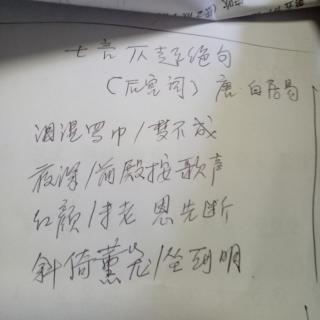 七言仄起绝句
（后宫词）唐·白居易
泪湿罗巾/梦不成
夜深/前殿按歌声
红颜/未老 恩先断
斜倚薰笼/坐到明